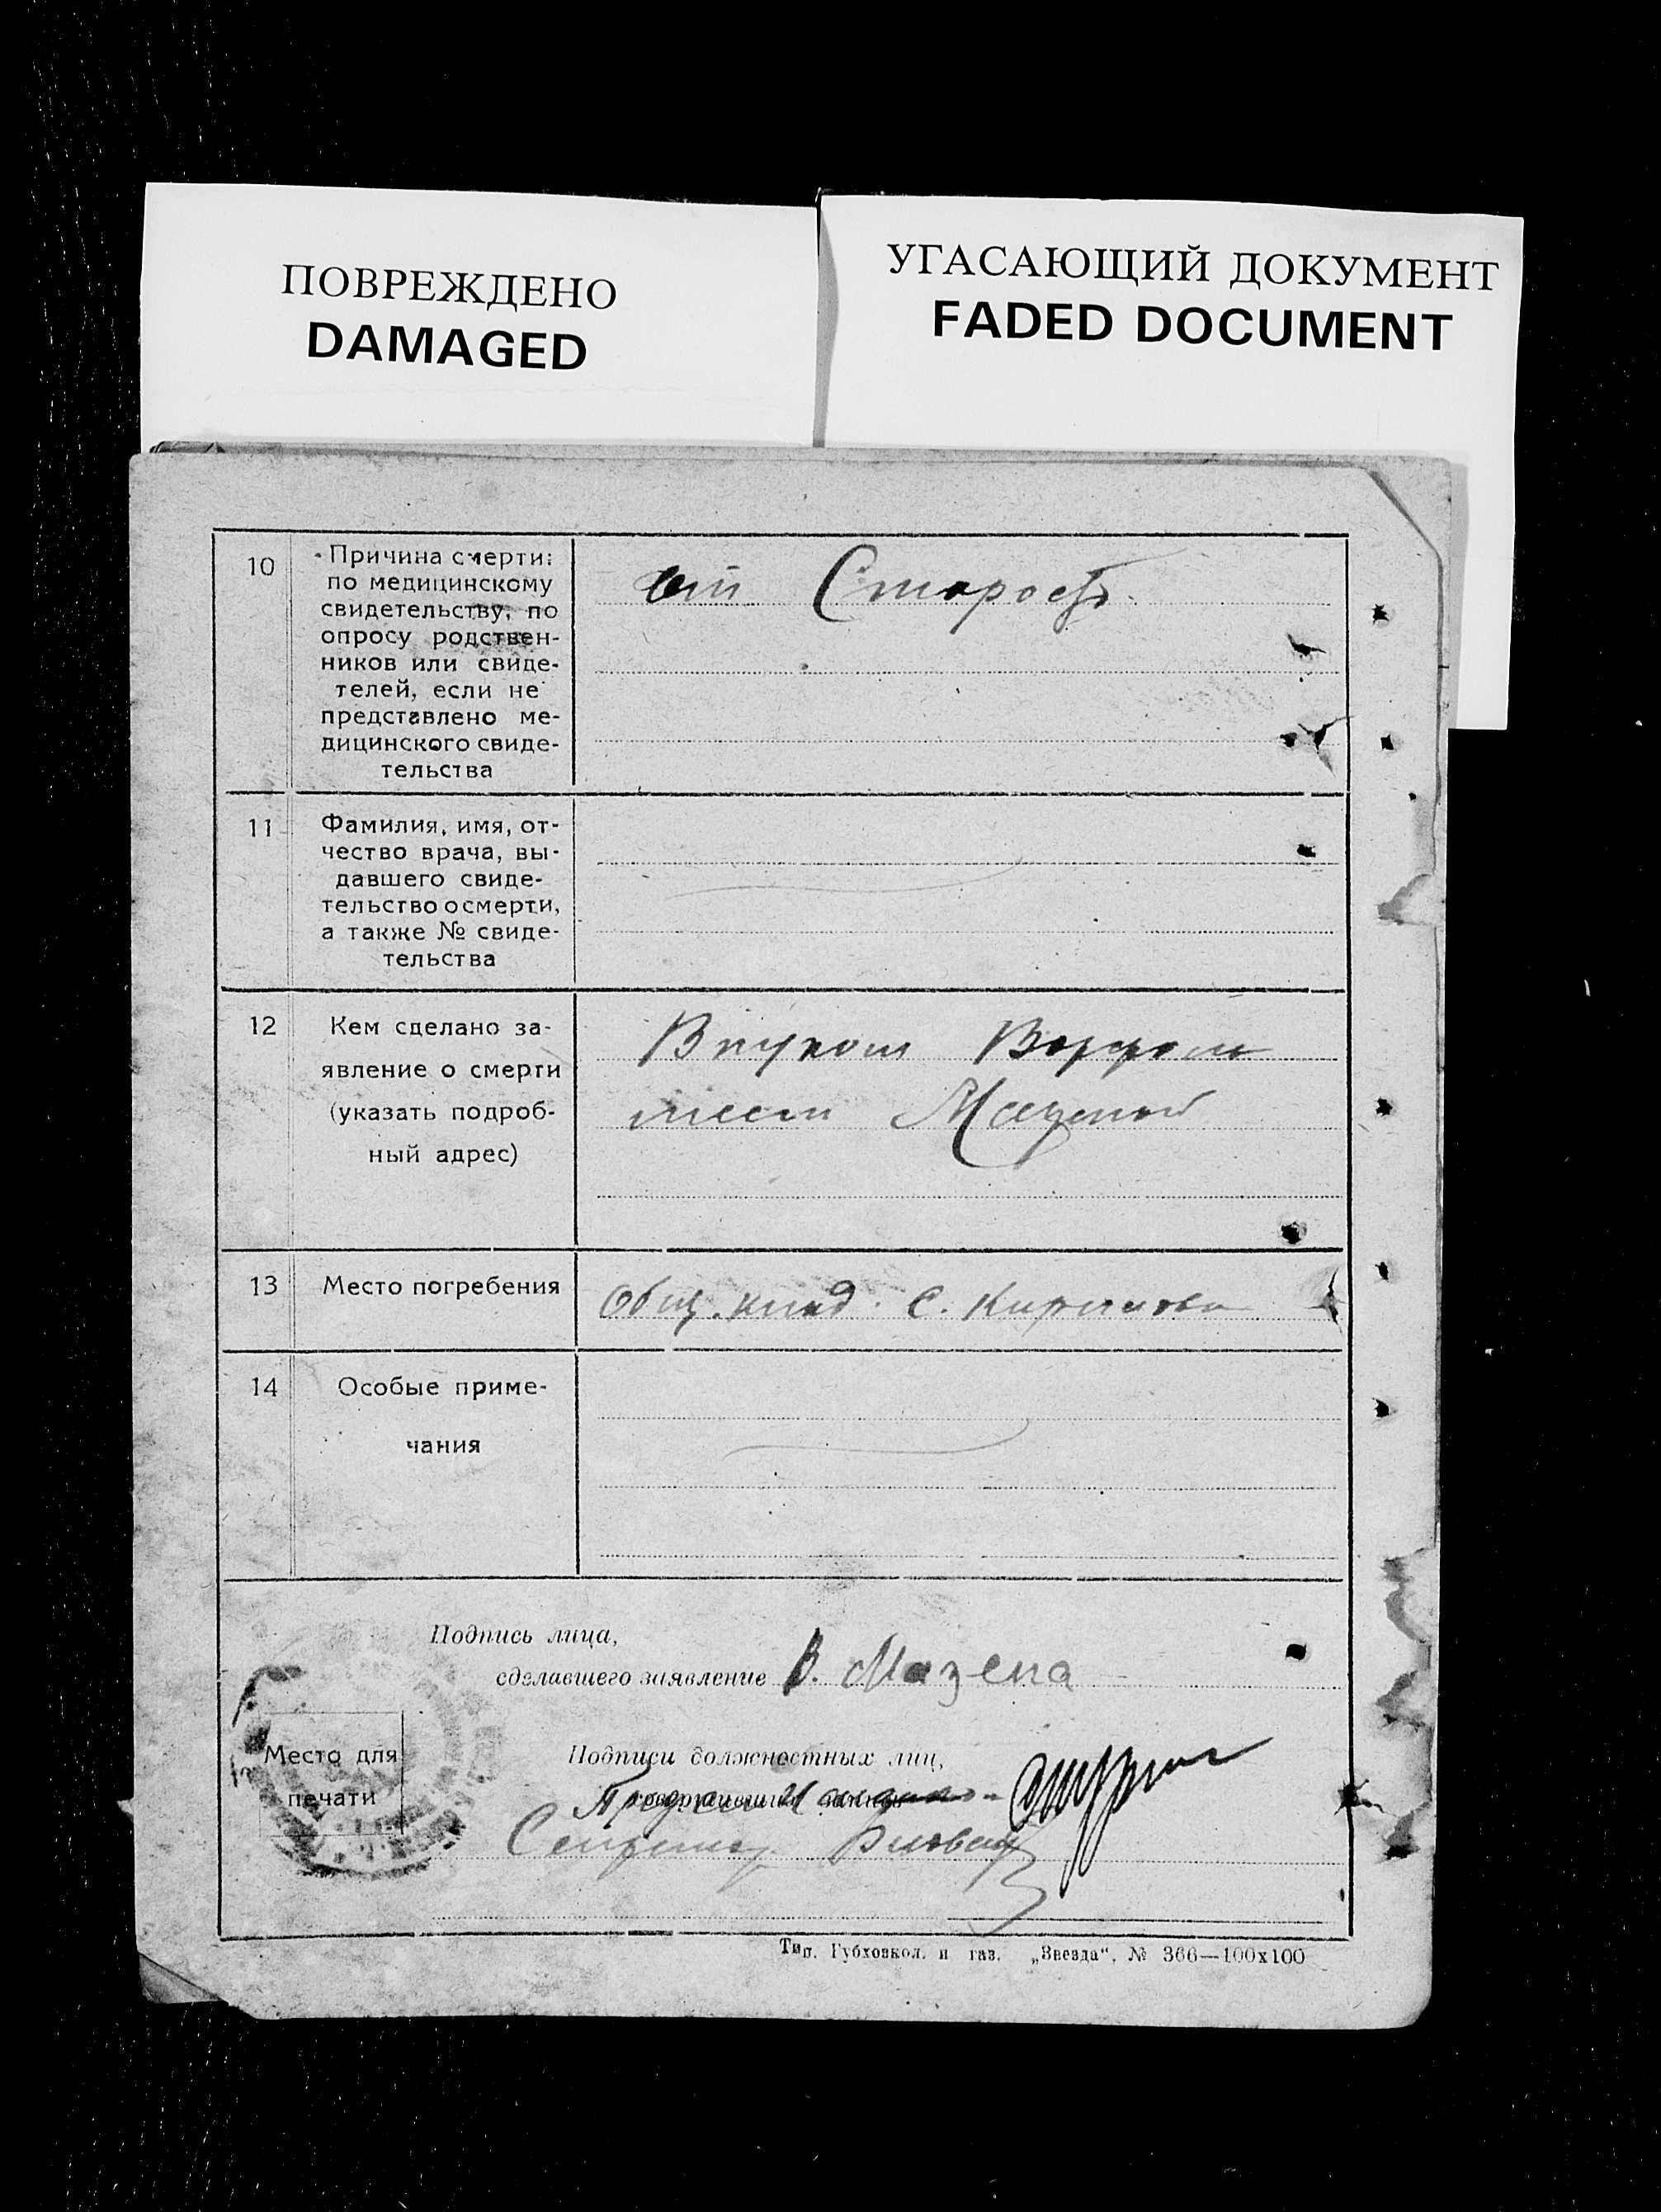 ПОВРЕЖДЕНО
DAMAGED
УГАСАЮЩИЙ ДОКУМЕНТ
FADED DOCUMENT
10
Причина смерти:
по медицинскому
свидетельству, по
опросу родствен-
ников или свиде-
телей, если не
представлено ме-
дицинского свиде-
тельства
от Старость
11
Фамилия, имя, от-
чество врача, вы-
давшего свиде-
тельство о смерти,
а также № свиде-
тельства
12
Кем сделано за-
явление о смерти
(указать подроб-
ный адрес)
Внуком
13
Место погребения
Общ. клад. с.
14
Особые приме-
чания
Подпись лица,
сделавшего заявление В. Мазепа
Место для
печати
Подписи должностных лиц,
совершивших запись
Секретар
Тип. Губховкол. и газ. „Звезда“, № 366—100х100